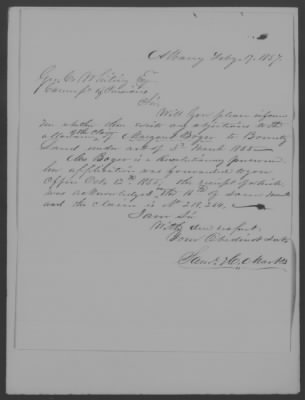 Albany Feby 17. 1857.
Geo. C. Whiting Esq
Comr of Pensions
Sir
Will you please inform
me whether there exists an objection to the
allowance of the claim of Margaret Boger to Bounty
Land under act of 3d March 1855
Mrs Boger is a Revolutionary pensioner
her application was forwarded to your
Office Oct. 12th the receipt of which
was acknowledged on the 16th of same month
and the claim is No 218,264.
I am Sir
With due respect
Your Obedient Svt